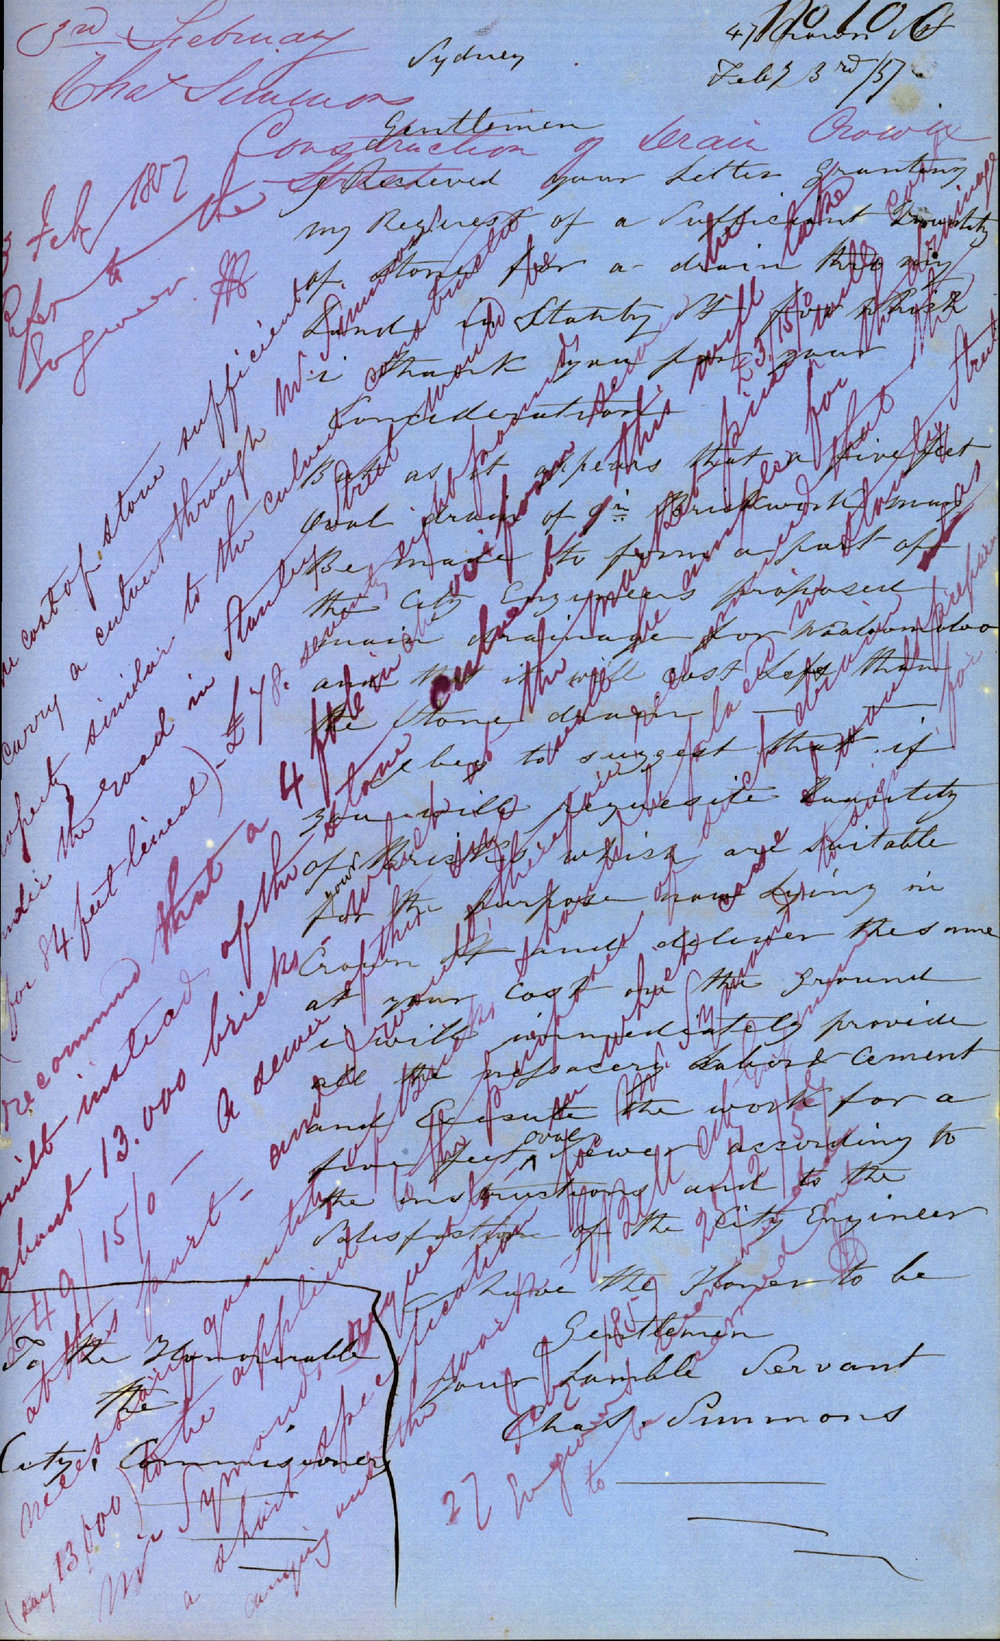 No 100
47 Crown St
Sydney
Feby 3rd/57
3rd February
Chas Simmons
Construction of drain Crown
Street
Gentlemen
I Recieved your Letter Granting
my Request of a Sufficient Quantity
of Stone for a drain thro my
Land in Stanley St for which
i thank you for your
Consideration
But as it appears that a five feet
Oval drain of 9in Brickwork may
Be made to form a part of
the City Engineers proposed
main drainage for Woolloomooloo
and that it will cost Less than
the Stone drain
I beg to suggest that if
you will requisite Quantity
of Bricks which are suitable
for the purpose now Lying in
your
Crown St and deliver the same
at your Cost on the Ground
i will immediately provide
all the nessacery Labor & Cement
and Execute the work for a
five feet oval sewer according to
the instructions and to the
Satisfaction of the City Engineer
I have the Honor to be
Gentlemen
Your Humble Servant
Chas. Simmons
To the Honourable
the
City Commissioners
3 Feby 1857
Refer to the
Engineer
The cost of stone sufficient
to carry a culvert through Mr Simmons
property similar to the culvert constructed
under the road in Stanley Street would be
(for 84 feet lineal) - £78. seventy eight pounds
I recommend that a 4 feet oval sewer be
built instead of the stone culvert this will take
about 13.000 bricks which at the market price £3/15/0
£49/15/0 - a sewer of this size will be ample for the drainage
at this part - and I would therefore recommend that the
necessary quantity of bricks should be placed in Stanley Street
(say 13,000) to be applied to the purpose of such drain
Mr Symonds request in which case I shall prepare
a short specification for Mr Symonds to sign for
carrying out the work
W Bell City Engineer
27/2/57
27 Feby 1857
Engineers recommendation
to be carried out